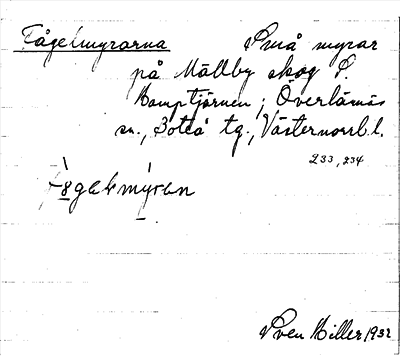 Fågelmyrarna Små myrar
på Mällby skog S.
Kamptjärnen; Överlännäs
sn., Boteå tg., Västernorrl. l.
233, 234
Sven Hiller 1932